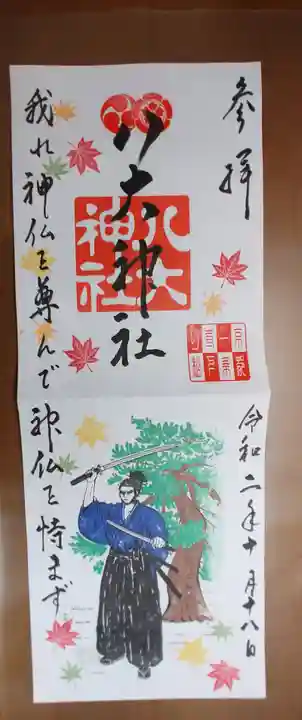 参拝
八大神社
八大神社
我れ神仏を尊んで神仏を恃まず
令和二年十月十八日